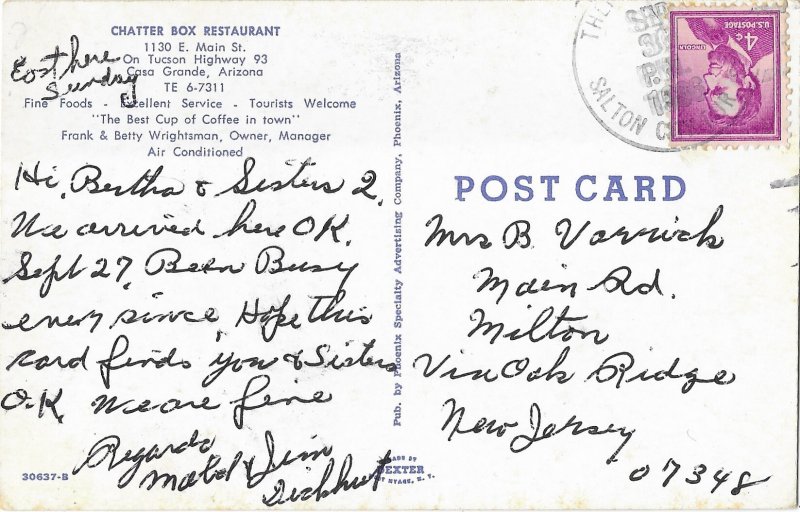 CHATTER BOX RESTAURANT
1130 E. Main St.
On Tucson Highway 93
Casa Grande, Arizona
TE 6-7311
Fine Foods - Excellent Service - Tourists Welcome
"The Best Cup of Coffee in town"
Frank & Betty Wrightsman, Owner, Manager
Air Conditioned
Eat here
Sunday
Hi, Bertha & Sisters 2,
We arrived here OK,
Sept 27, Been Busy
every since, Hope this
card finds you & Sisters
O.K. We are fine
Regards
Mabel & Jim
30637-B
Pub. by Phoenix Specialty Advertising Company, Phoenix, Arizona
MADE BY
DEXTER
WEST NYACK, N. Y.
SALTON
U.S. POSTAGE
4¢
LINCOLN
POST CARD
Mrs B. Varrick
Main Rd.
Milton
Via Oak Ridge
New Jersey
07348